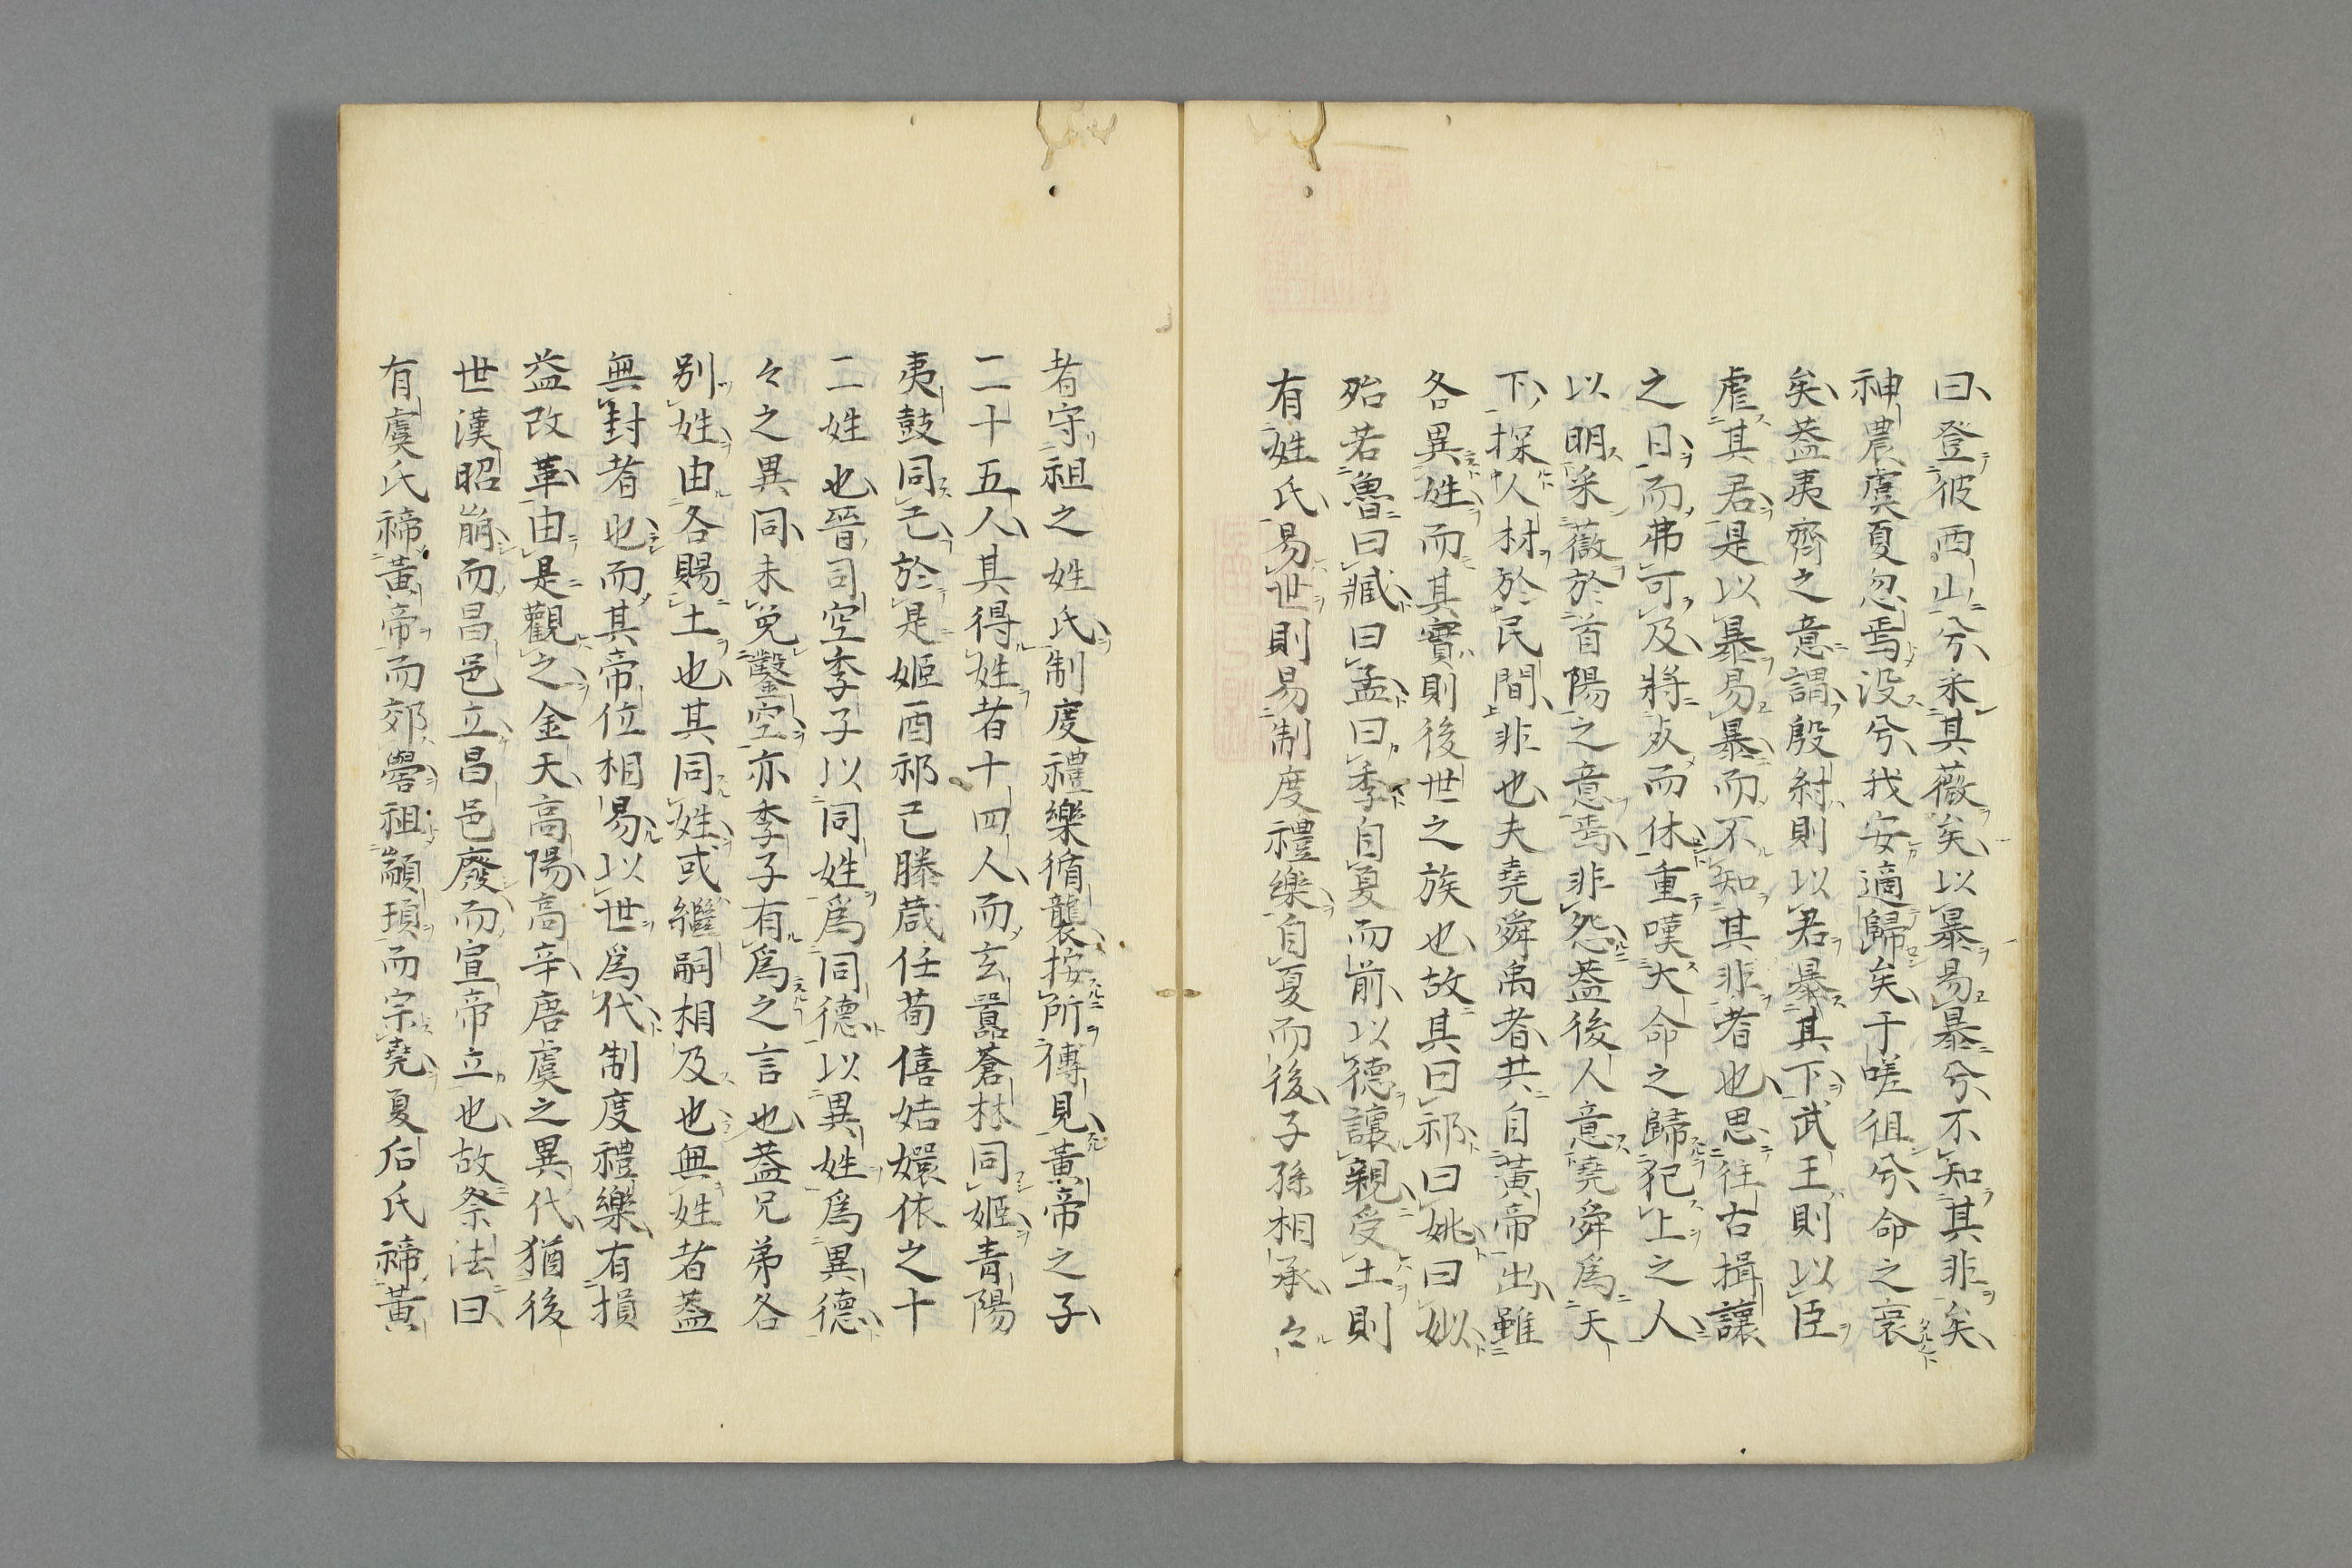 曰登彼西山兮采其薇矣以暴易暴兮不知其非矣
神農虞夏忽焉没兮我安適歸矣于嗟徂兮命之衰
矣蓋夷齊之意謂殷紂則以君暴其下武王則以臣
虐其君是以暴易暴而不知其非者也思往古揖讓
之日而弗可及將死而休重嘆大命之歸犯上之人
以明采薇於首陽之意焉非怨蓋後人意堯舜爲天
下探人材於民間非也夫堯舜禹者共自黃帝出雖
各異姓而其實則後世之族也故其曰祁曰姚曰姒
殆若魯曰臧曰孟曰季自夏而前以德讓親受土則
有姓氏易世則易制度禮樂自夏而後子孫相承々
者守祖之姓氏制度禮樂循襲按所傳見黃帝之子
二十五人其得姓者十四人而玄囂蒼林同姬青陽
夷鼓同己於是姬酉祁己滕葴任荀僖姞嬛依之十
二姓也晉司空季子以同姓爲同德以異姓爲異德
々之異同未免鑿空亦季子有爲之言也蓋兄弟各
别姓由各賜土也其同姓或繼嗣相及也無姓者蓋
無封者也而其帝位相易以世爲代制度禮樂有損
益改革由是觀之金天高陽高辛唐虞之異代猶後
世漢昭崩而昌邑立昌邑廢而宣帝立也故祭法曰
有虞氏禘黃帝而郊嚳祖顓頊而宗堯夏后氏禘黃